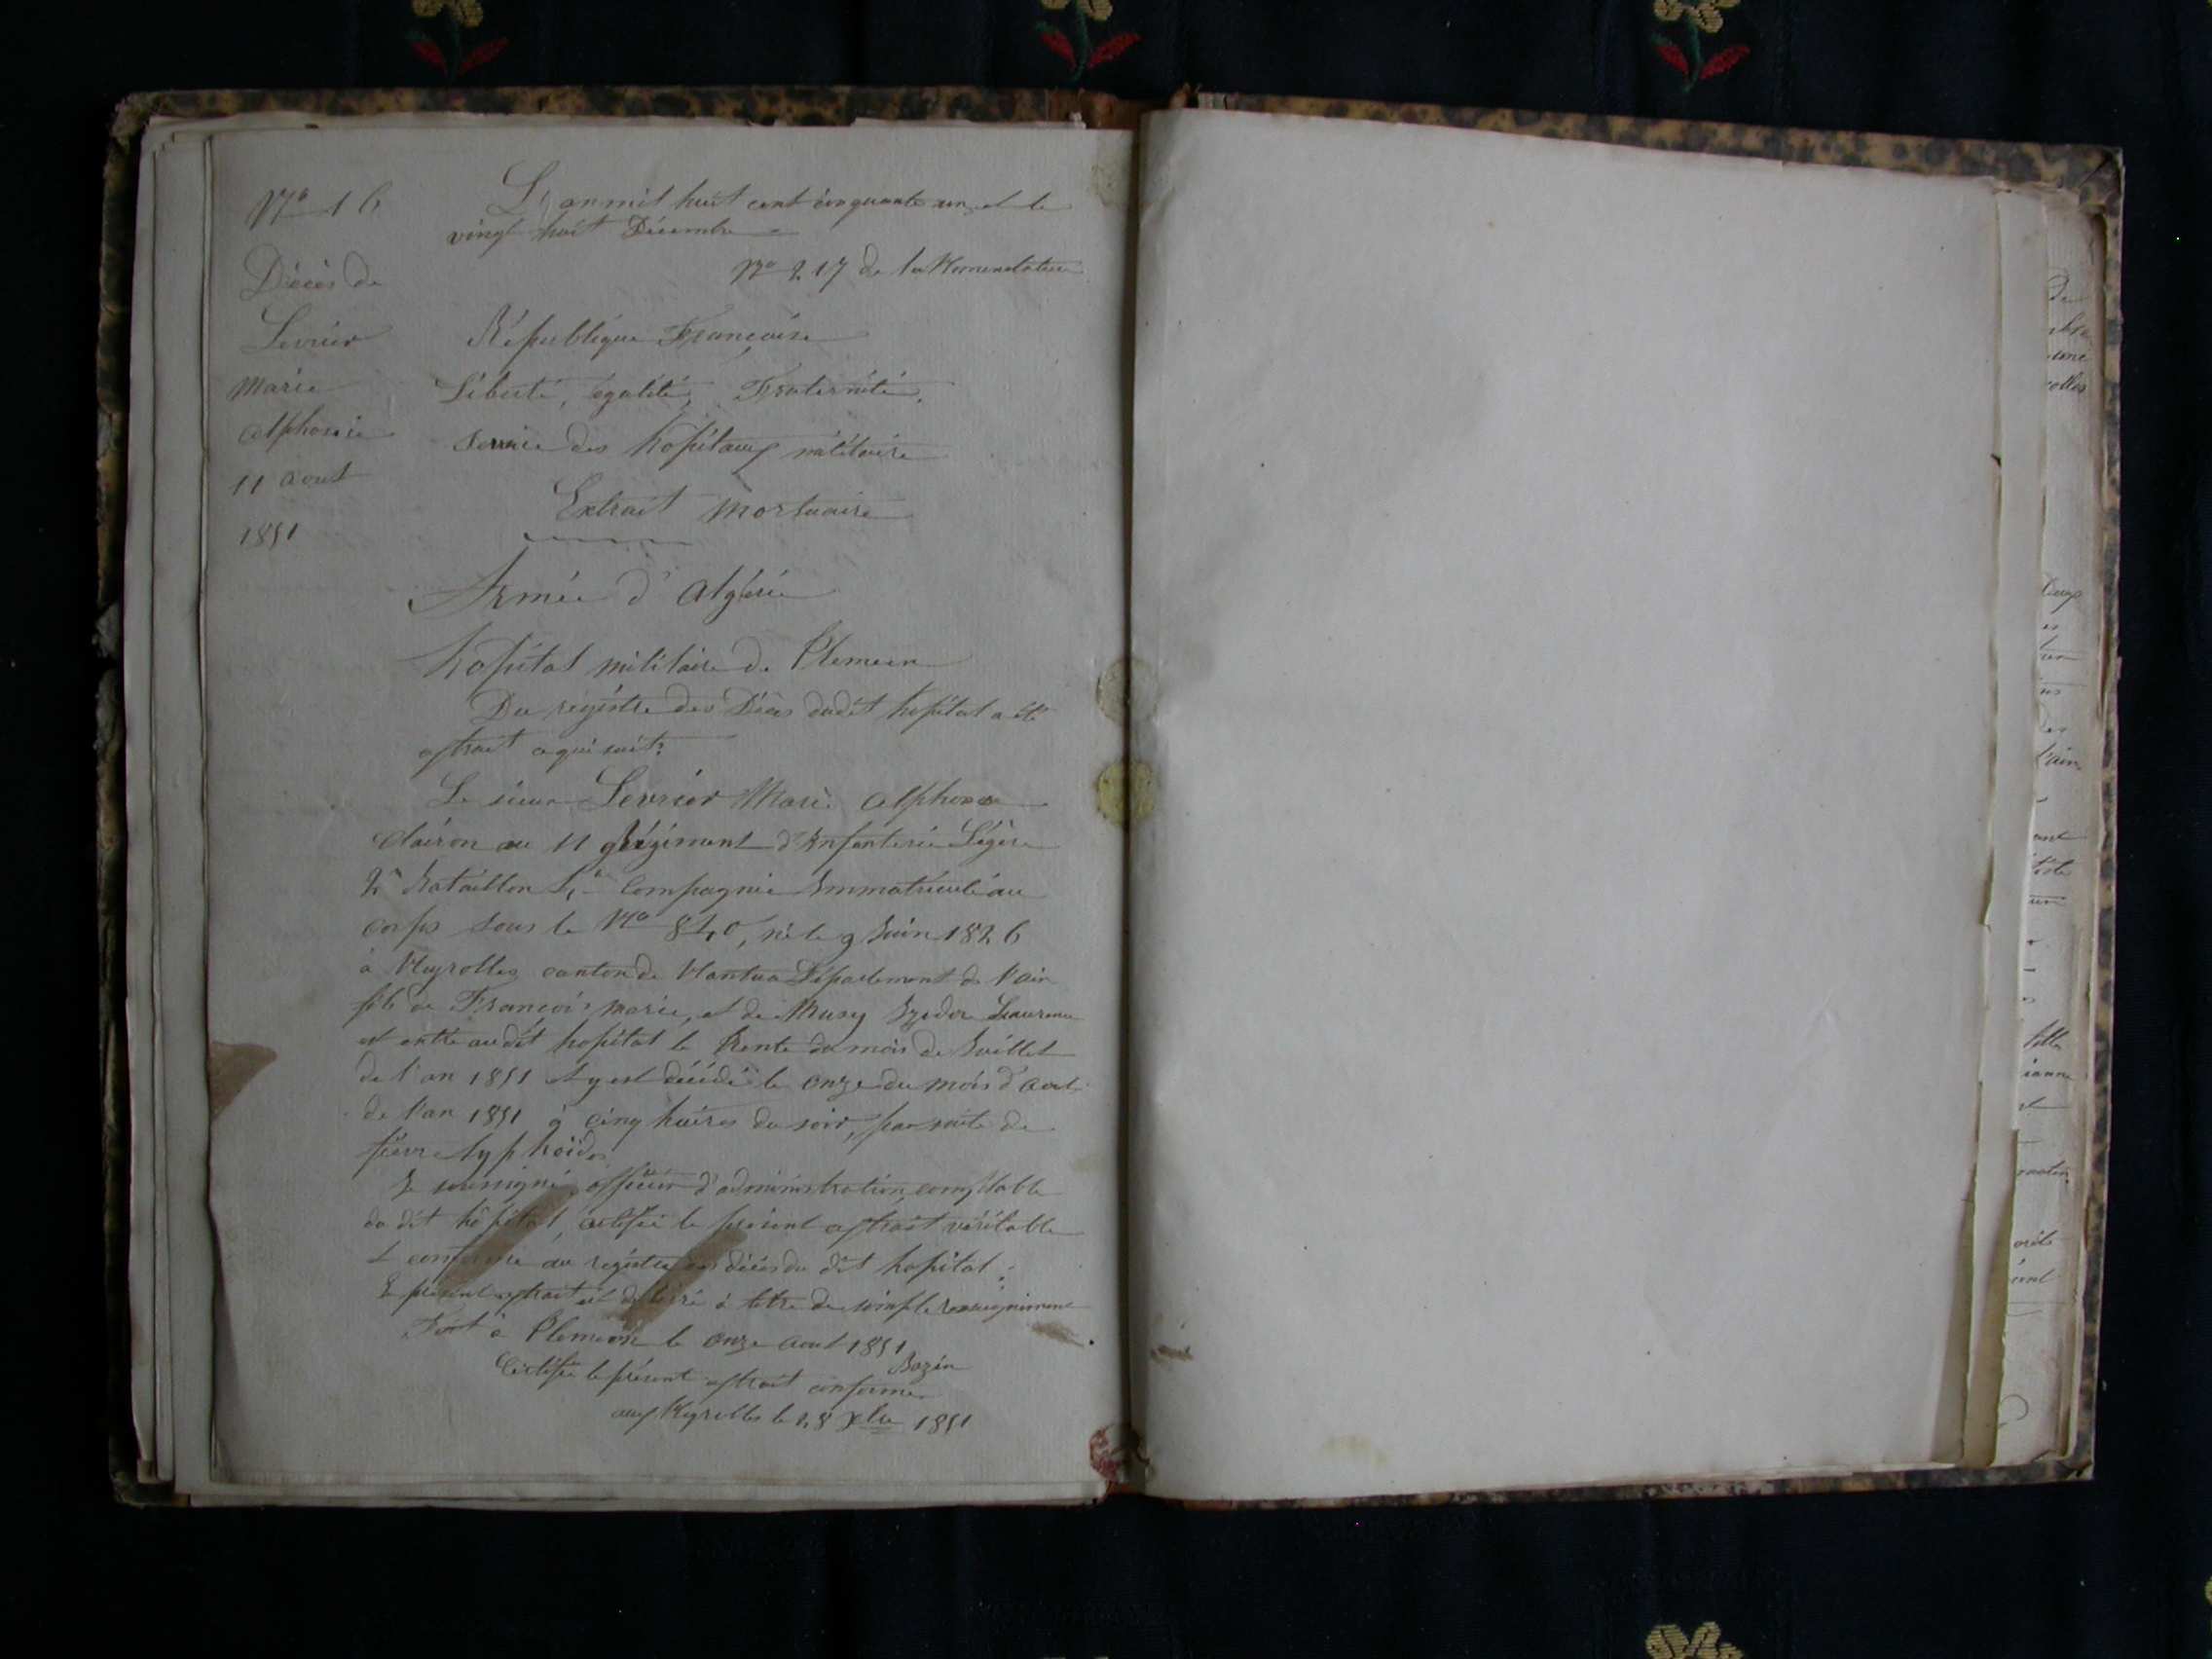 N° 16
Décès de
Levrier
Marie
alphonse
11 aout
1851
L'an mil huit cent cinquante un et le
vingt huit Décembre =
N° 217 de la Nomenclature
République Française
Liberté, égalité, Fraternité,
service des hopitaux militaire
Extrait mortuaire
Armée d'algérie
hopital militaire de Tlemcen
Du registre des Décès dudit hopital a été
extrait ce qui suit:
Le sieur Levrier Marie alphonse
Clairon au 11 Régiment d'Infanterie Légère
2e Bataillon 4e Compagnie Immatriculé au
corps sous le N° 840, né le 9 Juin 1826
à Neyrolles canton de Nantua Département de l'ain
fils de François marie, et de Musy Laurence
est entré audit hopital le trente du mois de Juillet
de l'an 1851 et y est décédé le onze du mois d'aout
de l'an 1851 à cinq heures du soir, par suite de
fièvre typhoïde
Je soussigné officier d'administration, comptable
du dit hôpital, certifie le présent extrait véritable
et conforme au registre des décès du dit hopital:
Le présent extrait est délivré à titre de simple renseignement
Fait à Tlemcen le onze aout 1851
Bazin
Certifié le présent extrait conforme
aux Neyrolles le 28 Xbre 1851